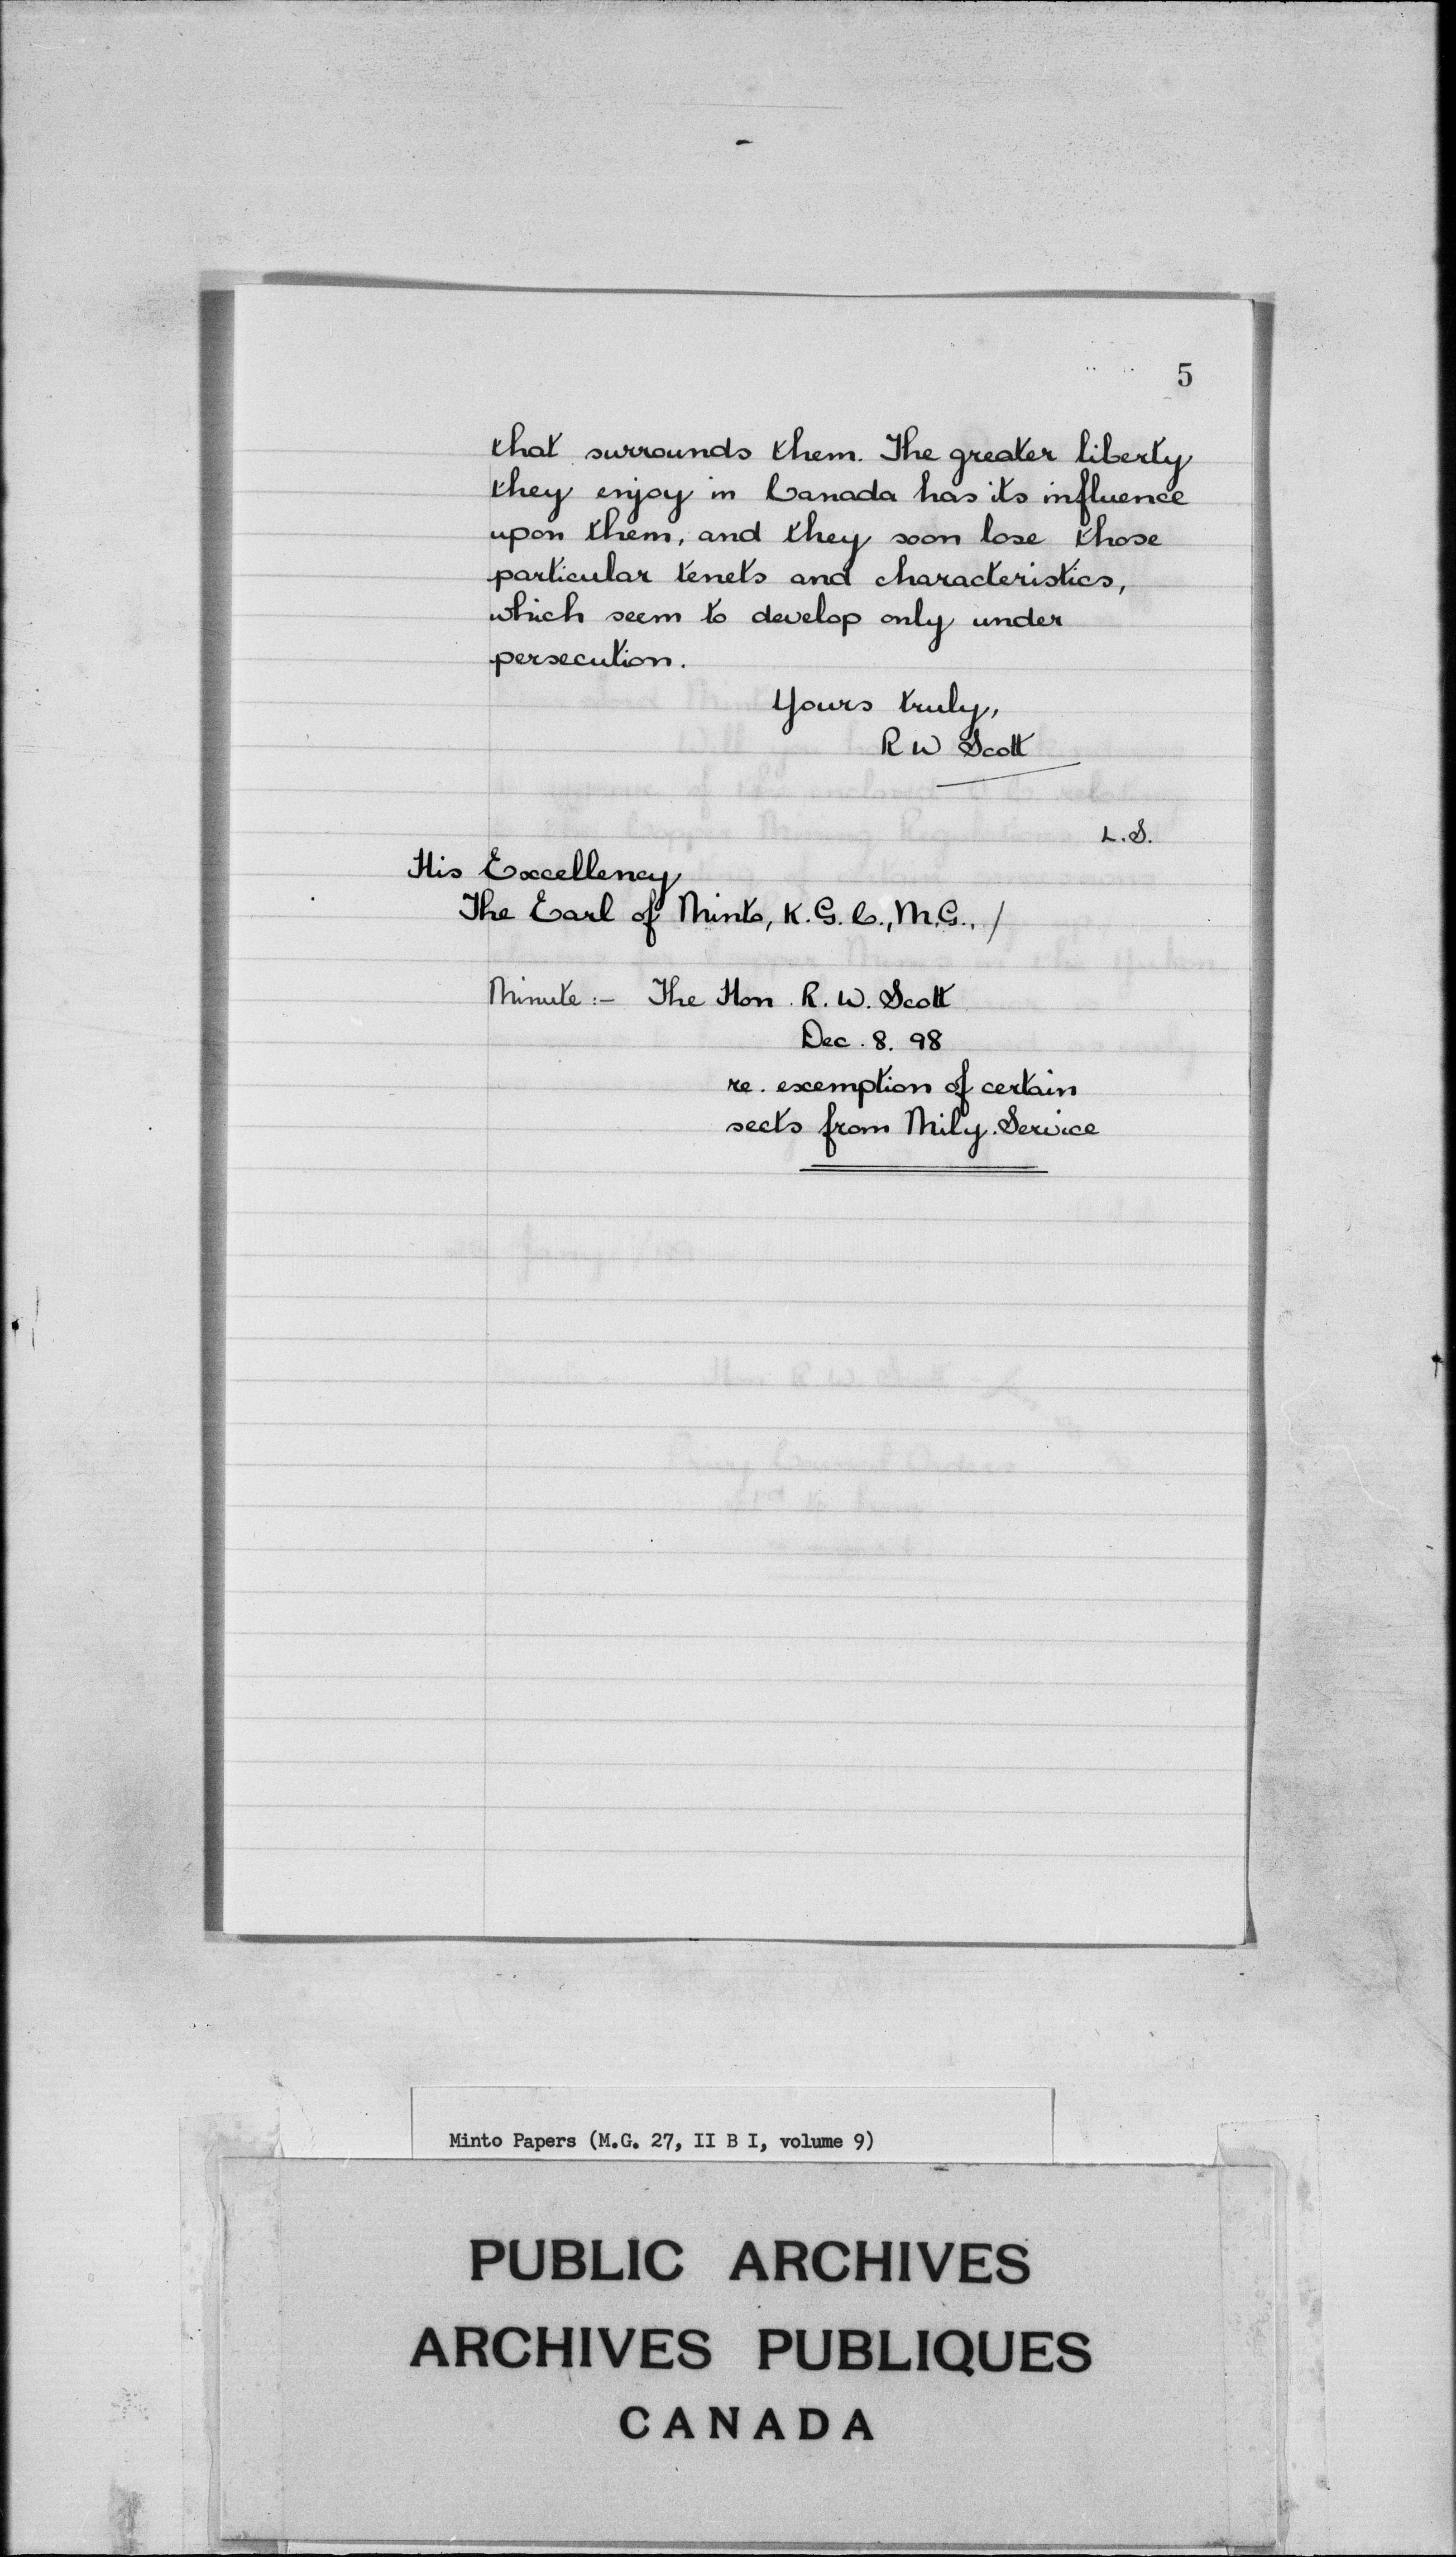 5
that surrounds them. The greater liberty
they enjoy in Canada has its influence
upon them, and they soon lose those
particular tenets and characteristics,
which seem to develop only under
persecution.
Yours truly,
R W Scott
L.S.
His Excellency
The Earl of Minto, K.G.C., M.G., /
Minute :- The Hon. R. W. Scott
Dec. 8. 98
re. exemption of certain
sects from Mily. Service
Minto Papers (M.G. 27, II B I, volume 9)
PUBLIC ARCHIVES
ARCHIVES PUBLIQUES
CANADA